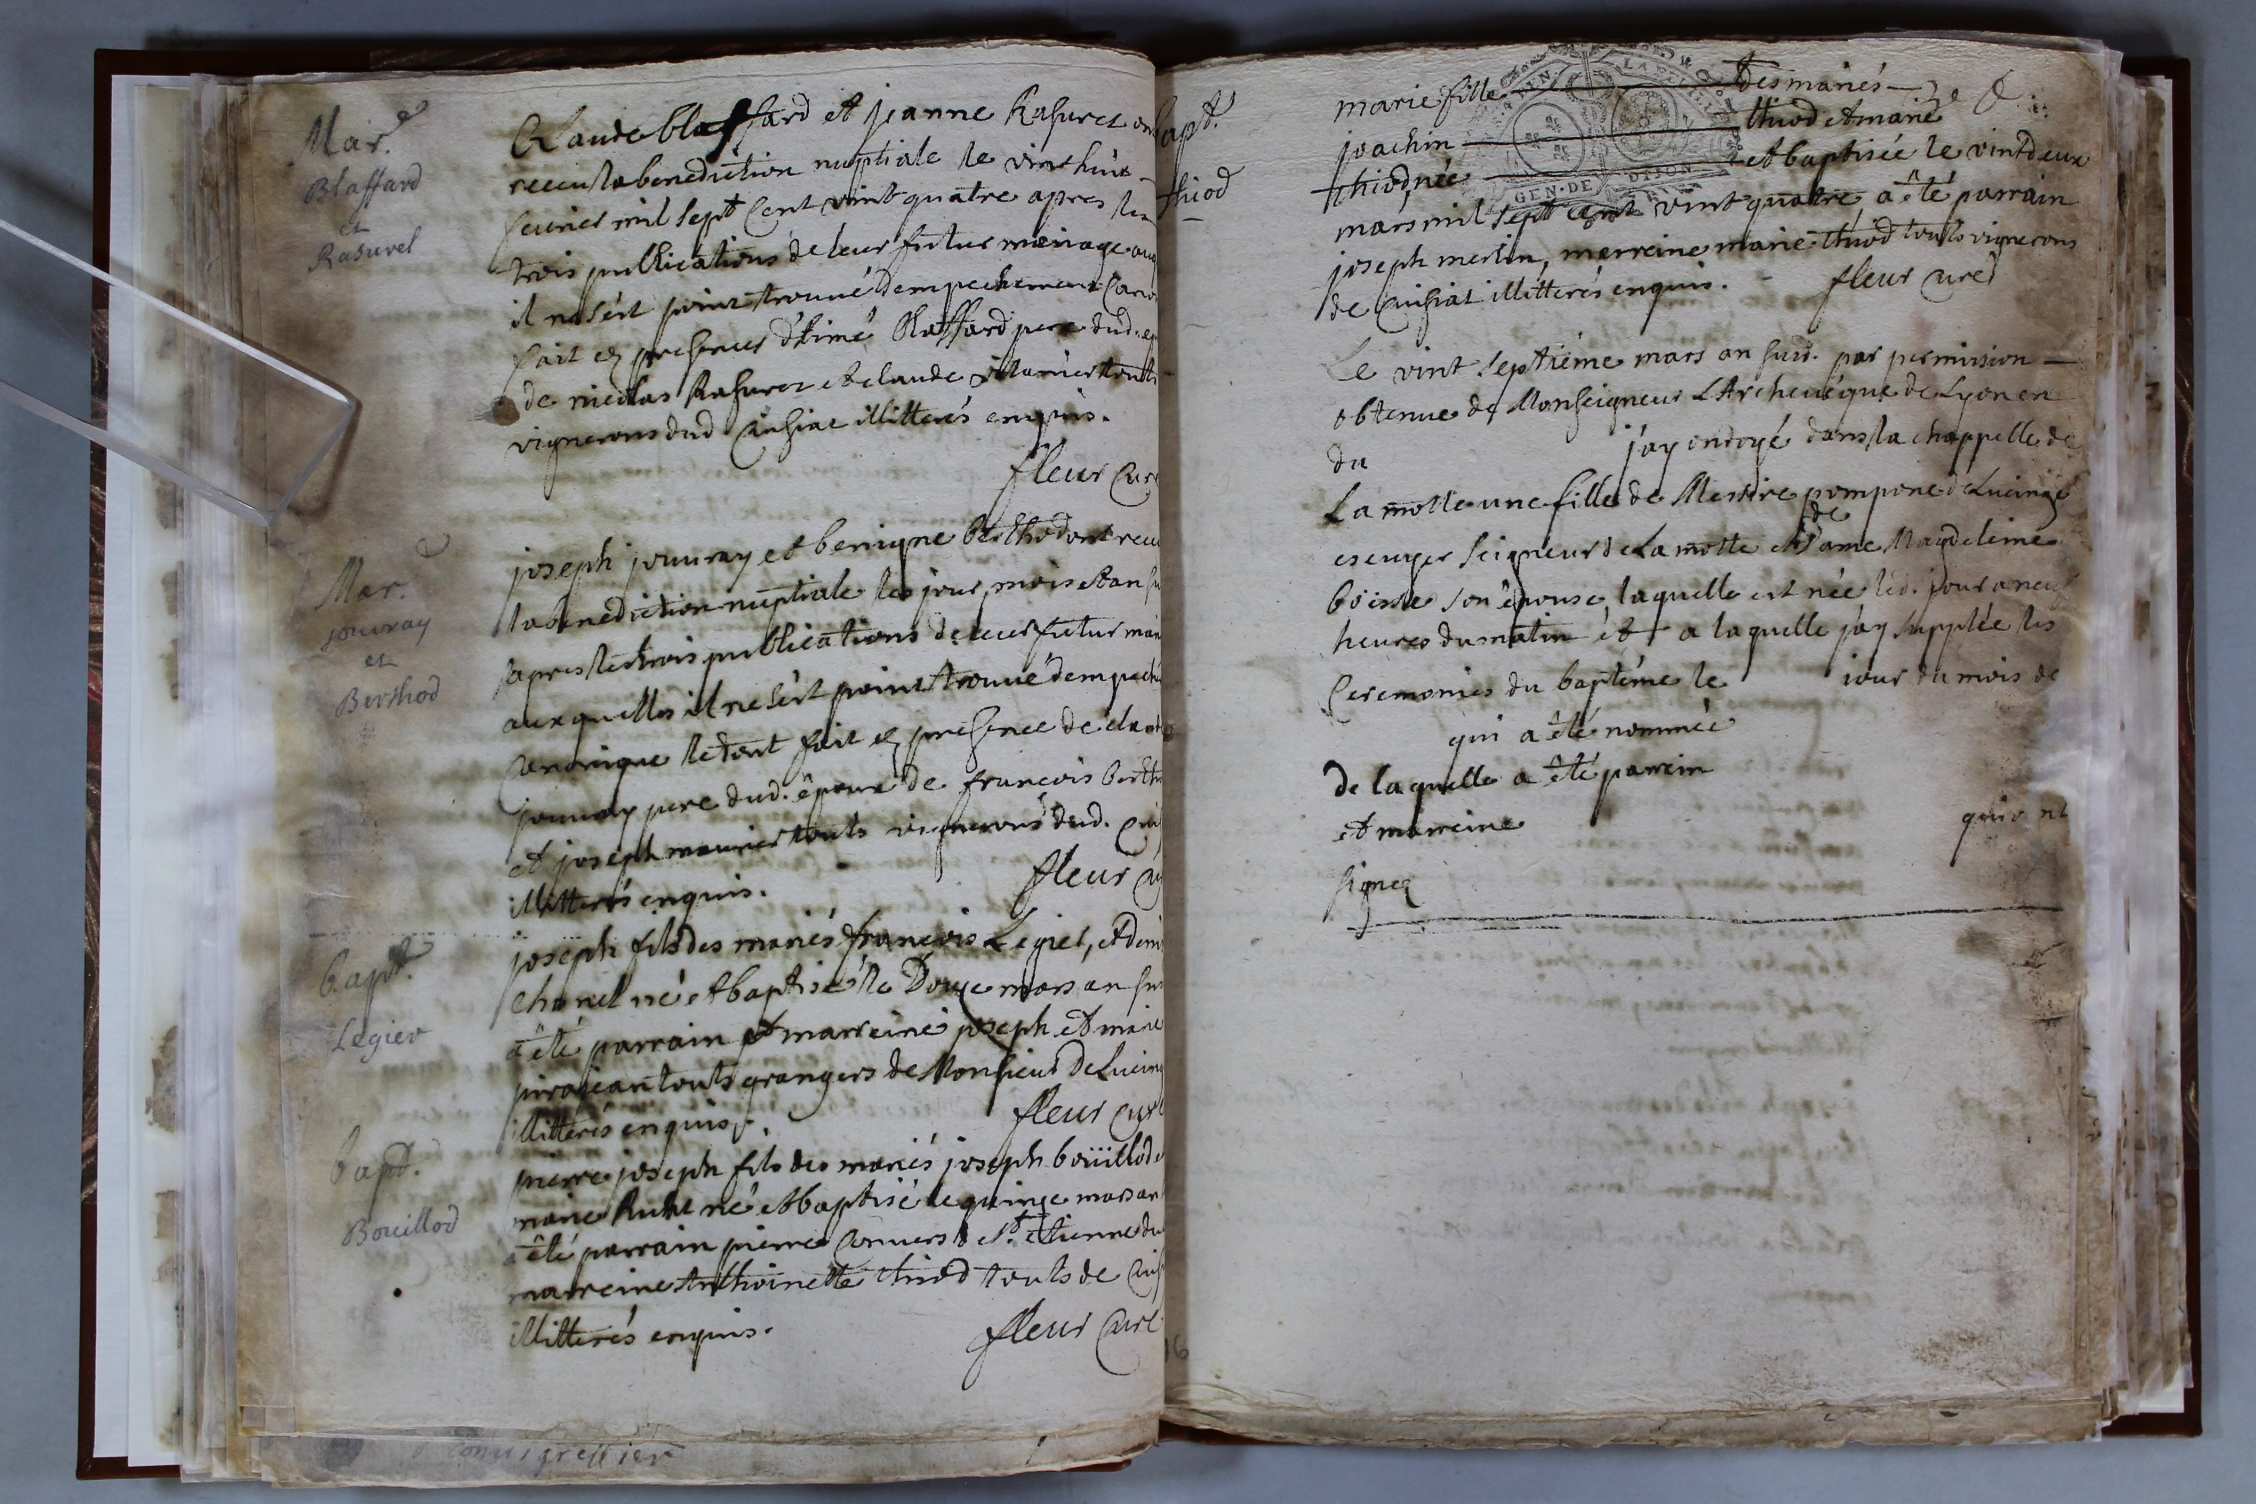 Mar.e
Blaffard
et
Rasurel
Claude blaffard et jeanne Rasurel ont
receu la benediction nuptiale le vint huit
feurier mil sept Cent vint quatre apres les
trois publications de leur futur mariage aux
il ne s'est point trouué d'empechement Cano
fait en presence d'Aimé Blaffard pere dud.
de nicolas Rasurel et claude touts
vignerons dud Cuisiat illitterés enquis.
fleur Curé
Mar.e
jouuray
et
Berthod
joseph jouuray et benigne berthod ont receu
la benediction nuptiale les jour, mois et an su
apres les trois publications de leur futur mari
auxquelles il ne s'est point trouué d'empeche
Canonique le tout fait en presence de claude
jouuray pere dud. époux de francois berth
et joseph maurier touts vignerons dud. Cuis
illitterés enquis.
fleur Cu
bapt.
Legier
joseph fils des mariés françois Legier, et
Chanel né et baptisé le Douze mars an sus
a été parrain et marreine joseph et marie
touts grangers de Monsieur De Lucing
illitterés enquis.
fleur curé
bapt.
Bouillod
pierre joseph fils des mariés joseph boüillod et
marie né et baptisé le quinze mars an
a été parrain pierre Conuers de st. etienne du
marreine Anthoinette thiod touts de Cuis
illitterés enquis.
fleur Curé
Conus greffier
bapt.
thiod
marie fille des mariés
joachin thiod et marie
thiod, née et baptisée le vint deux
mars mil sept cent vint quatre a été parrain
joseph merlin, marreine marie thiod touts vignerons
de Cuisiat illitterés enquis. fleur curé
GEN. DE DIJON
Le vint septiéme mars an susd. par permission
obtenue de Monseigneur L'Archeuéque de Lyon en
du j'ay ondoyé dans la chappelle de
La motte une fille de Messire pompone de Lucinge
escuyer seigneur de La motte et de dame Magdeleine
boisse son épouse, laquelle est née led. jour a neuf
heures du matin et a laquelle j'ay supplée les
Ceremonies du baptéme le jour du mois de
qui a été nommée
de laquelle a été parrein
et marreine qui ont
signez
16